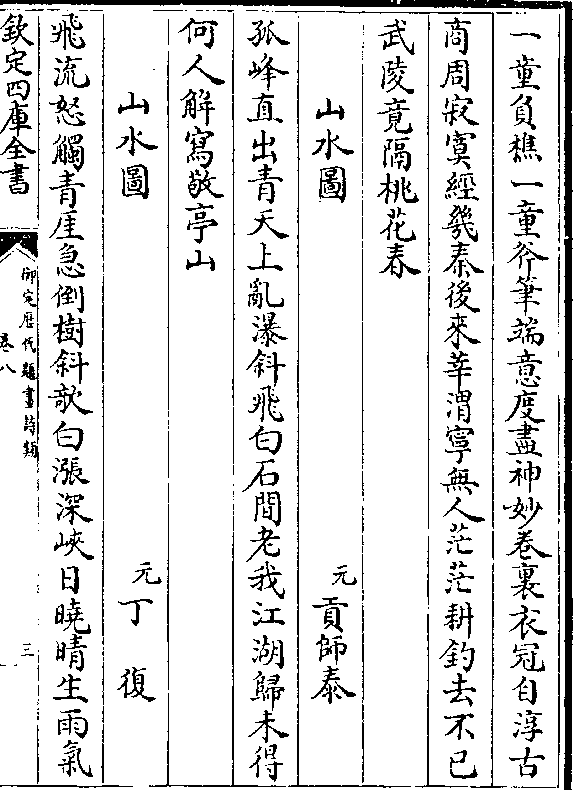 一童負樵一童斧筆端意度盡神妙卷裏衣冠自淳古
商周寂寞經幾秦後來莘渭寧無人茫茫耕釣去不已
武陵竟隔桃花春
山水圖　元貢師泰
孤峰直出青天上亂瀑斜飛白石間老我江湖歸未得
何人解寫敬亭山
山水圖　元丁復
飛流怒觸青厓急倒樹斜欹白漲深峽日曉晴生雨氣
欽定四庫全書
御定歷代題畫詩類
卷八
三